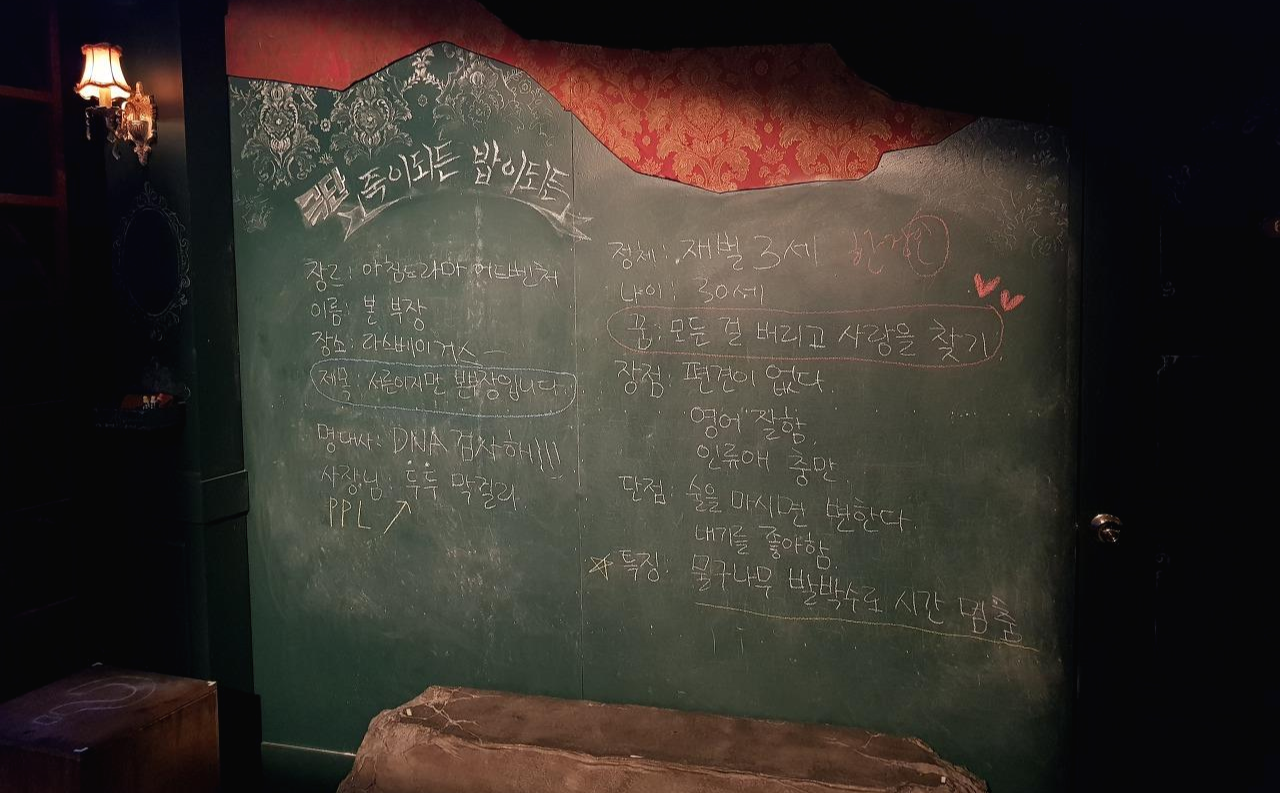 극단 죽이되든 밥이되든
장르: 아침드라마 어드벤처
이름: 본 부장
장소: 라스베이거스
제목: 서른이지만 본부장입니다.
명대사: DNA 검사해!!!
사장님: 투투 막걸리
PPL
정체: 재벌 3세
나이: 30세
꿈: 모든 걸 버리고 사랑을 찾기
장점: 편견이 없다.
영어 잘함.
인류애 충만
단점: 술을 마시면 변한다.
내기를 좋아함
특징: 물구나무 발박수로 시간 멈춤